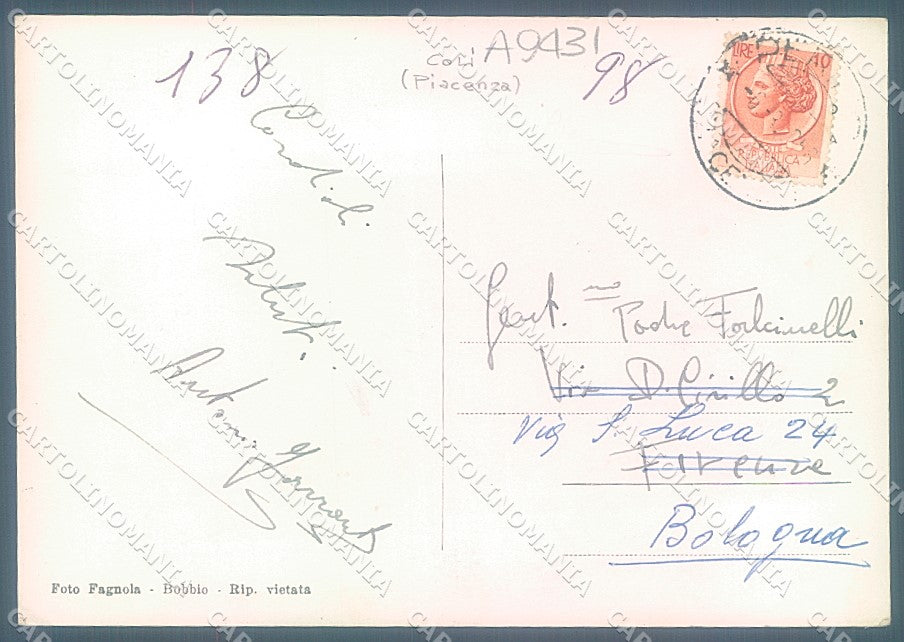 138
Coli
(Piacenza)
A9431
98
LIRE 10
Cordiali
saluti
Gent. mo Padre Falcinelli
Via D. Cirillo 2
Via S. Luca 24
Firenze
Bologna
Foto Fagnola - Bobbio - Rip. vietata
CARTOLINOMANIA